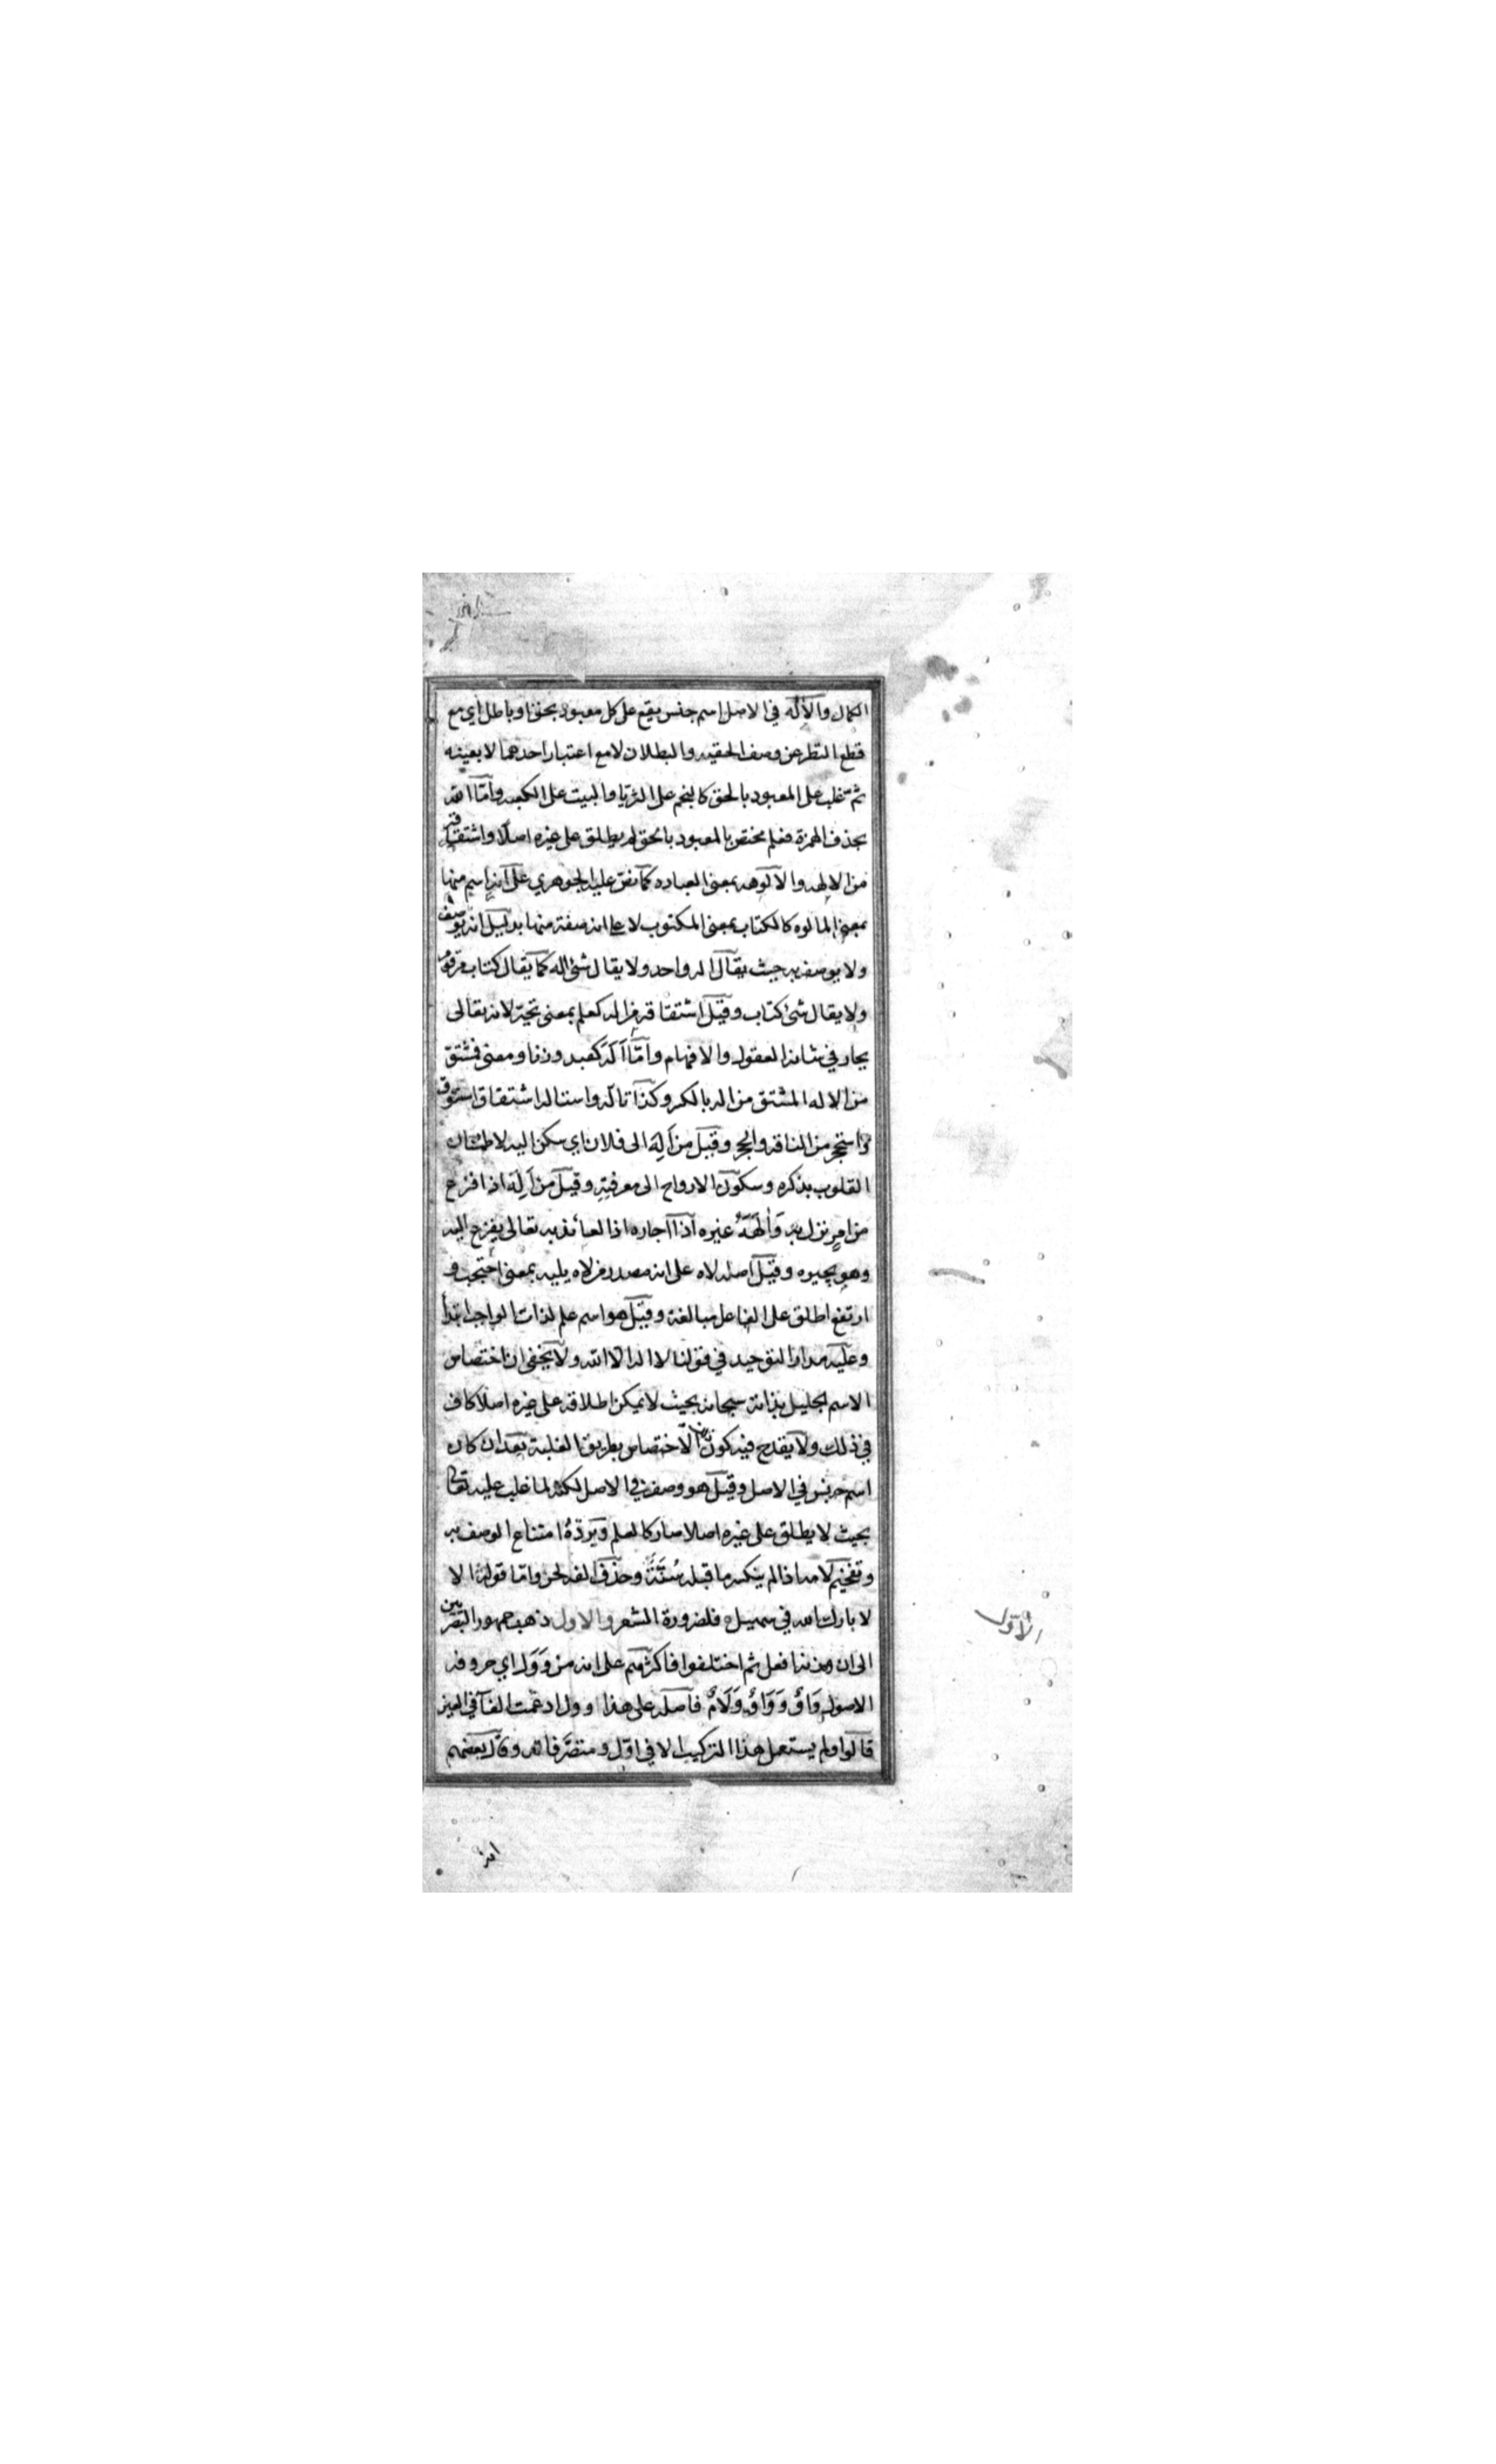 الكمال والاله في الاصل اسم جنس يقع على كل معبود بحق او باطل اي مع
قطع النظر عن وصف الحقيه والبطلان لا مع اعتبار احدهما لا بعينه
ثم غلب على المعبود بالحق كالنجم على الثريا والبيت على الكعبه واما الله
بحذف الهمزة فعلم مختص بالمعبود بالحق لم يطلق على غيره اصلا واشتقاقه
من الالهه والالوهه بمعنى العباده كما نص عليه الجوهري على انه اسم منها
بمعنى المالوه كالكتاب بمعنى المكتوب لا على انه صفة منها بدليل انه يوصف
ولا يوصف به حيث يقال اله واحد ولا يقال شئ اله كما يقال كتاب مرقوم
ولا يقال شئ كتاب وقيل اشتقاقه من اله كعلم بمعنى تحير لانه تعالى
يحار في شانه العقول والافهام واما اله كعبد وزنا ومعنى فمشتق
من الاله المشتق من اله بالكسر وكذا تاله واستاله اشتقاق استنوق
واستحجر من الناقه والحجر وقيل من اله الى فلان اي سكن اليه لاطمئنان
القلوب بذكره وسكون الارواح الى معرفته وقيل من اله اذا فزع
من امر نزل به وآلهه غيره اذا اجاره اذ العائذ به تعالى يفزع اليه
وهو يجيره وقيل اصله لاه على انه مصدر من لاه يليه بمعنى احتجب و
ارتفع اطلق على الفاعل مبالغة وقيل هو اسم علم لذات الواجب ابتدأ
وعليه مدار التوحيد في قولنا لا اله الا الله ولا يخفى ان اختصاص
الاسم الجليل بذاته سبحانه بحيث لا يمكن اطلاقه على غيره اصلا كاف
في ذلك ولا يقدح فيه كون الاختصاص بطريق الغلبة بعد ان كان
اسم جنس في الاصل وقيل هو وصف في الاصل لكنه لما غلب عليه تعالى
بحيث لا يطلق على غيره اصلا صار كالعلم ويردّه امتناع الوصف به
وتفخيم لامه اذا لم ينكسر ما قبله سُنَّةٌ وحذف الفه لحن واما قوله الا
لا بارك الله في سهيل فلضرورة الشعر والاول ذهب جمهور البصريين
الى ان وزنه افعل ثم اختلفوا فاكثرهم على انه من وَوَل اي حروفه
الاصول وَاوٌ وَوَاوٌ وَلَامٌ فاصله على هذا اوول ادغمت الفآ في العين
قالوا ولم يستعمل هذا التركيب الا في اوّل ومتصرّفاته وقال بعضهم
الأوّل